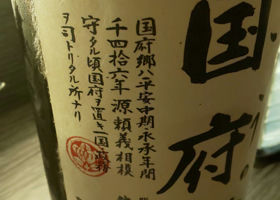 国府
国府郷八平安中期永承年間
千四拾六年源頼義相模
守タル頃国府ヲ置キ一国
ヲ司トリタル所ナリ